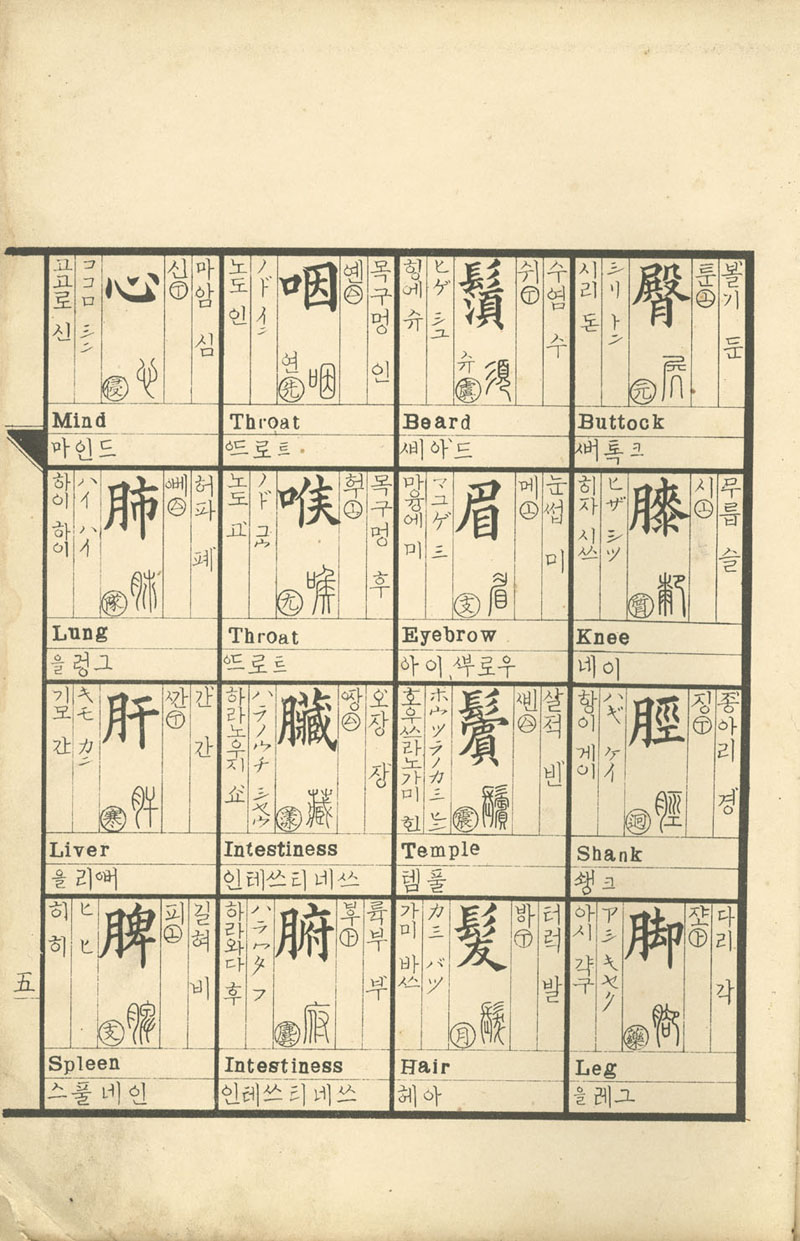 볼기 둔
툰 ㊤
臀
元
シリ トン
시리 돈
Buttock
ᄲᅥ톡크
무릅 슬
시 ㊤
膝
質
ヒザ シツ
히자 시쓰
Knee
네이
죵아리 경
징 ㊦
脛
迥
ハギ ケイ
항이 게이
Shank
쇙크
다리 각
쟌
脚
藥
アシ キヤク
아시 갹구
Leg
을레그
수염 수
쉬 ㊦
鬚
슈
虞
ヒゲ シユ
힝에 슈
Beard
ᄲᅵ아드
눈썹 미
메 ㊤
眉
支
マユゲ ミ
마융에 미
Eyebrow
아이, ᄲᅳ로우
살젹 빈
ᄲᅵᆫ
鬢
震
ホウヅラノカミ ヒン
호우쓰라노가미 힌
Temple
템풀
터럭 발
ᄫᅡ ㊦
髮
月
カミ バツ
가미 바쓰
Hair
헤아
목구멍 인
옌
咽
연
先
ノド イン
노도 인
Throat
ᅋᅳ로트
목구멍 후
후 ㊤
喉
尤
ノド コウ
노도 고
Throat
ᅋᅳ로트
오장 쟝
ᄶᅡᆼ
臟
漾
ハラノウチ シヤウ
하라노우지 쇼
Intestiness
인테쓰티네쓰
륙부 부
부 ㊤
腑
麌
ハラワタ フ
하라와다 후
Intestiness
인테쓰티네쓰
마암 심
신 ㊦
心
侵
ココロ シン
고고로 신
Mind
마인드
허파 폐
ᅄᅦ
肺
隊
ハイ ハイ
하이 하이
Lung
을렁그
간 간
ᄭᅡᆫ ㊦
肝
寒
キモ カン
기모 간
Liver
을리ᅄᅥ
길혀 비
피 ㊤
脾
支
ヒ ヒ
히 히
Spleen
스풀네인
五